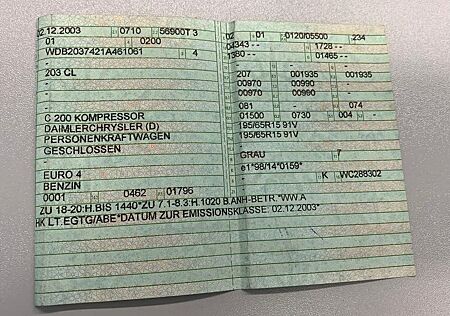 02.12.2003 0710 56900T 3
01 0200
WDB2037421A461061 4
-
203 CL
-
-
-
C 200 KOMPRESSOR
DAIMLERCHRYSLER (D)
PERSONENKRAFTWAGEN
GESCHLOSSEN
-
EURO 4
BENZIN
0001 0462 01796
02 01 0120/05500 234
04343 -- 1728 --
1380 -- 01465 --
-
207 001935 001935
00970 00990 -
00970 00990 -
081 074
01500 0730 004 -
195/65R15 91V
195/65R15 91V
-
GRAU 7
e1*98/14*0159*
- K WC288302
ZU 18-20:H.BIS 1440*ZU 7.1-8.3:H.1020 B.ANH-BETR.*WW.A
HK LT.EGTG/ABE*DATUM ZUR EMISSIONSKLASSE: 02.12.2003*